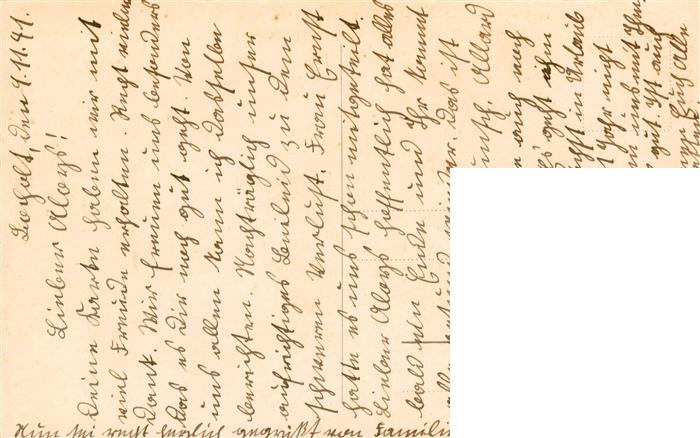 Bocholt, den 9.11.41.
Lieber Aloys!
Deine Karte haben wir mit
viel Freude erhalten. Recht vielen
Dank. Wir freuen uns besonders
das es dir noch gut geht. Von
uns allen kann ich dasselbe
berichten. Nachträglich unser
aufrichtiges Beileid zu dem
schweren Verlust. Frau Ernst
hatte es uns schon mitgeteilt.
Lieber Aloys hoffentlich hat alles
bald ein Ende und Ihr kommt
Das ist
Wunsch. Allard
auch noch
geht ihm
nicht in Urlaub
Jahr nicht
uns mit Ihm
gut. Ist auch
Euch Alle
Nun sei recht herzlich gegrüßt von Familie